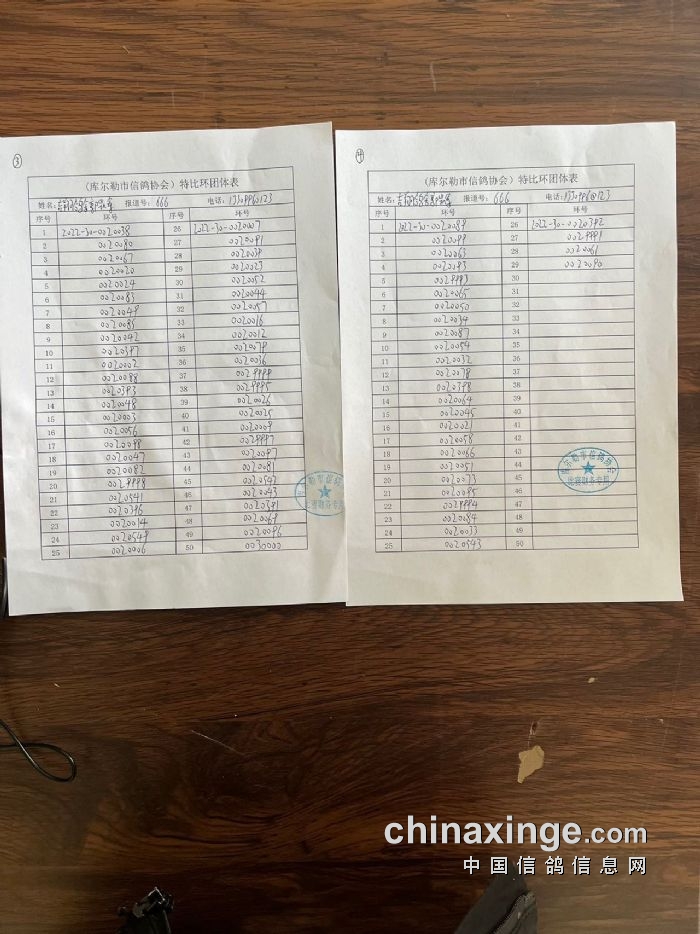 ③
(库尔勒市信鸽协会)特比环团体表
姓名: 报道号: 666 电话:
序号 环号 26 环号
1 2022-30-0020038 26 2022-30-0020007
2 0020080 27 0020091
3 0020067 28 0020039
4 0020020 29 0020023
5 0020024 30 0020052
6 0020083 31 0020044
7 0020049 32 0020057
8 0020085 33 0020016
9 0020042 34 0020012
10 0020397 35 0020079
11 0020002 36 0020036
12 0020088 37 0029998
13 0020393 38 0029995
14 0020048 39 0020026
15 0020003 40 0020025
16 0020056 41 0020009
17 0020098 42 0029997
18 0020047 43 0020097
19 0020082 44 0020081
20 0029998 45 0020542
21 0020541 46 0020043
22 0020396 47 0020391
23 0020014 48 0020069
24 0020549 49 0020096
25 0020006 50 0030000
库尔勒市信鸽协会
竞赛财务专用
④
(库尔勒市信鸽协会)特比环团体表
姓名: 报道号: 666 电话:
序号 环号 序号 环号
1 2022-30-0020089 26 2022-30-0020392
2 0020099 27 0029991
3 0020063 28 0020061
4 0020093 29 0020090
5 0029993 30
6 0020065 31
7 0020050 32
8 0020034 33
9 0020087 34
10 0020054 35
11 0020032 36
12 0020078 37
13 0020398 38
14 0020064 39
15 0020045 40
16 0020021 41
17 0020058 42
18 0020066 43
19 0020051 44
20 0020073 45
21 0020095 46
22 0029994 47
23 0020084 48
24 0020033 49
25 0020543 50
库尔勒市信鸽协会
竞赛财务专用
chinaxinge.com
中国信鸽信息网